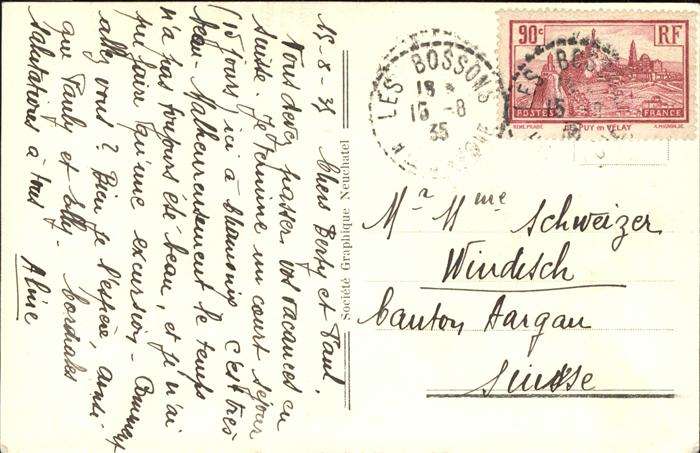 15-8-35 Chers Betsy et Paul,
Vous devez passer vos vacances en
Suisse. Je termine un court séjour
(15 jours) ici à Chamonix c'est très
beau. Malheureusement le temps
n'a pas toujours été beau, et je n'ai
pu faire qu'une excursion. Comment
allez vous? Bien je l'espère, ainsi
que Pauly et Elly. Cordiales
salutations à tous
Aline
Société Graphique Neuchatel
LES BOSSONS
18
15 -8
35
Hte SAVOIE
90c RF
POSTES FRANCE
LE PUY en VELAY
LES BOSSONS
15
Mr Mme Schweizer
Windisch
Canton Aargau
Suisse